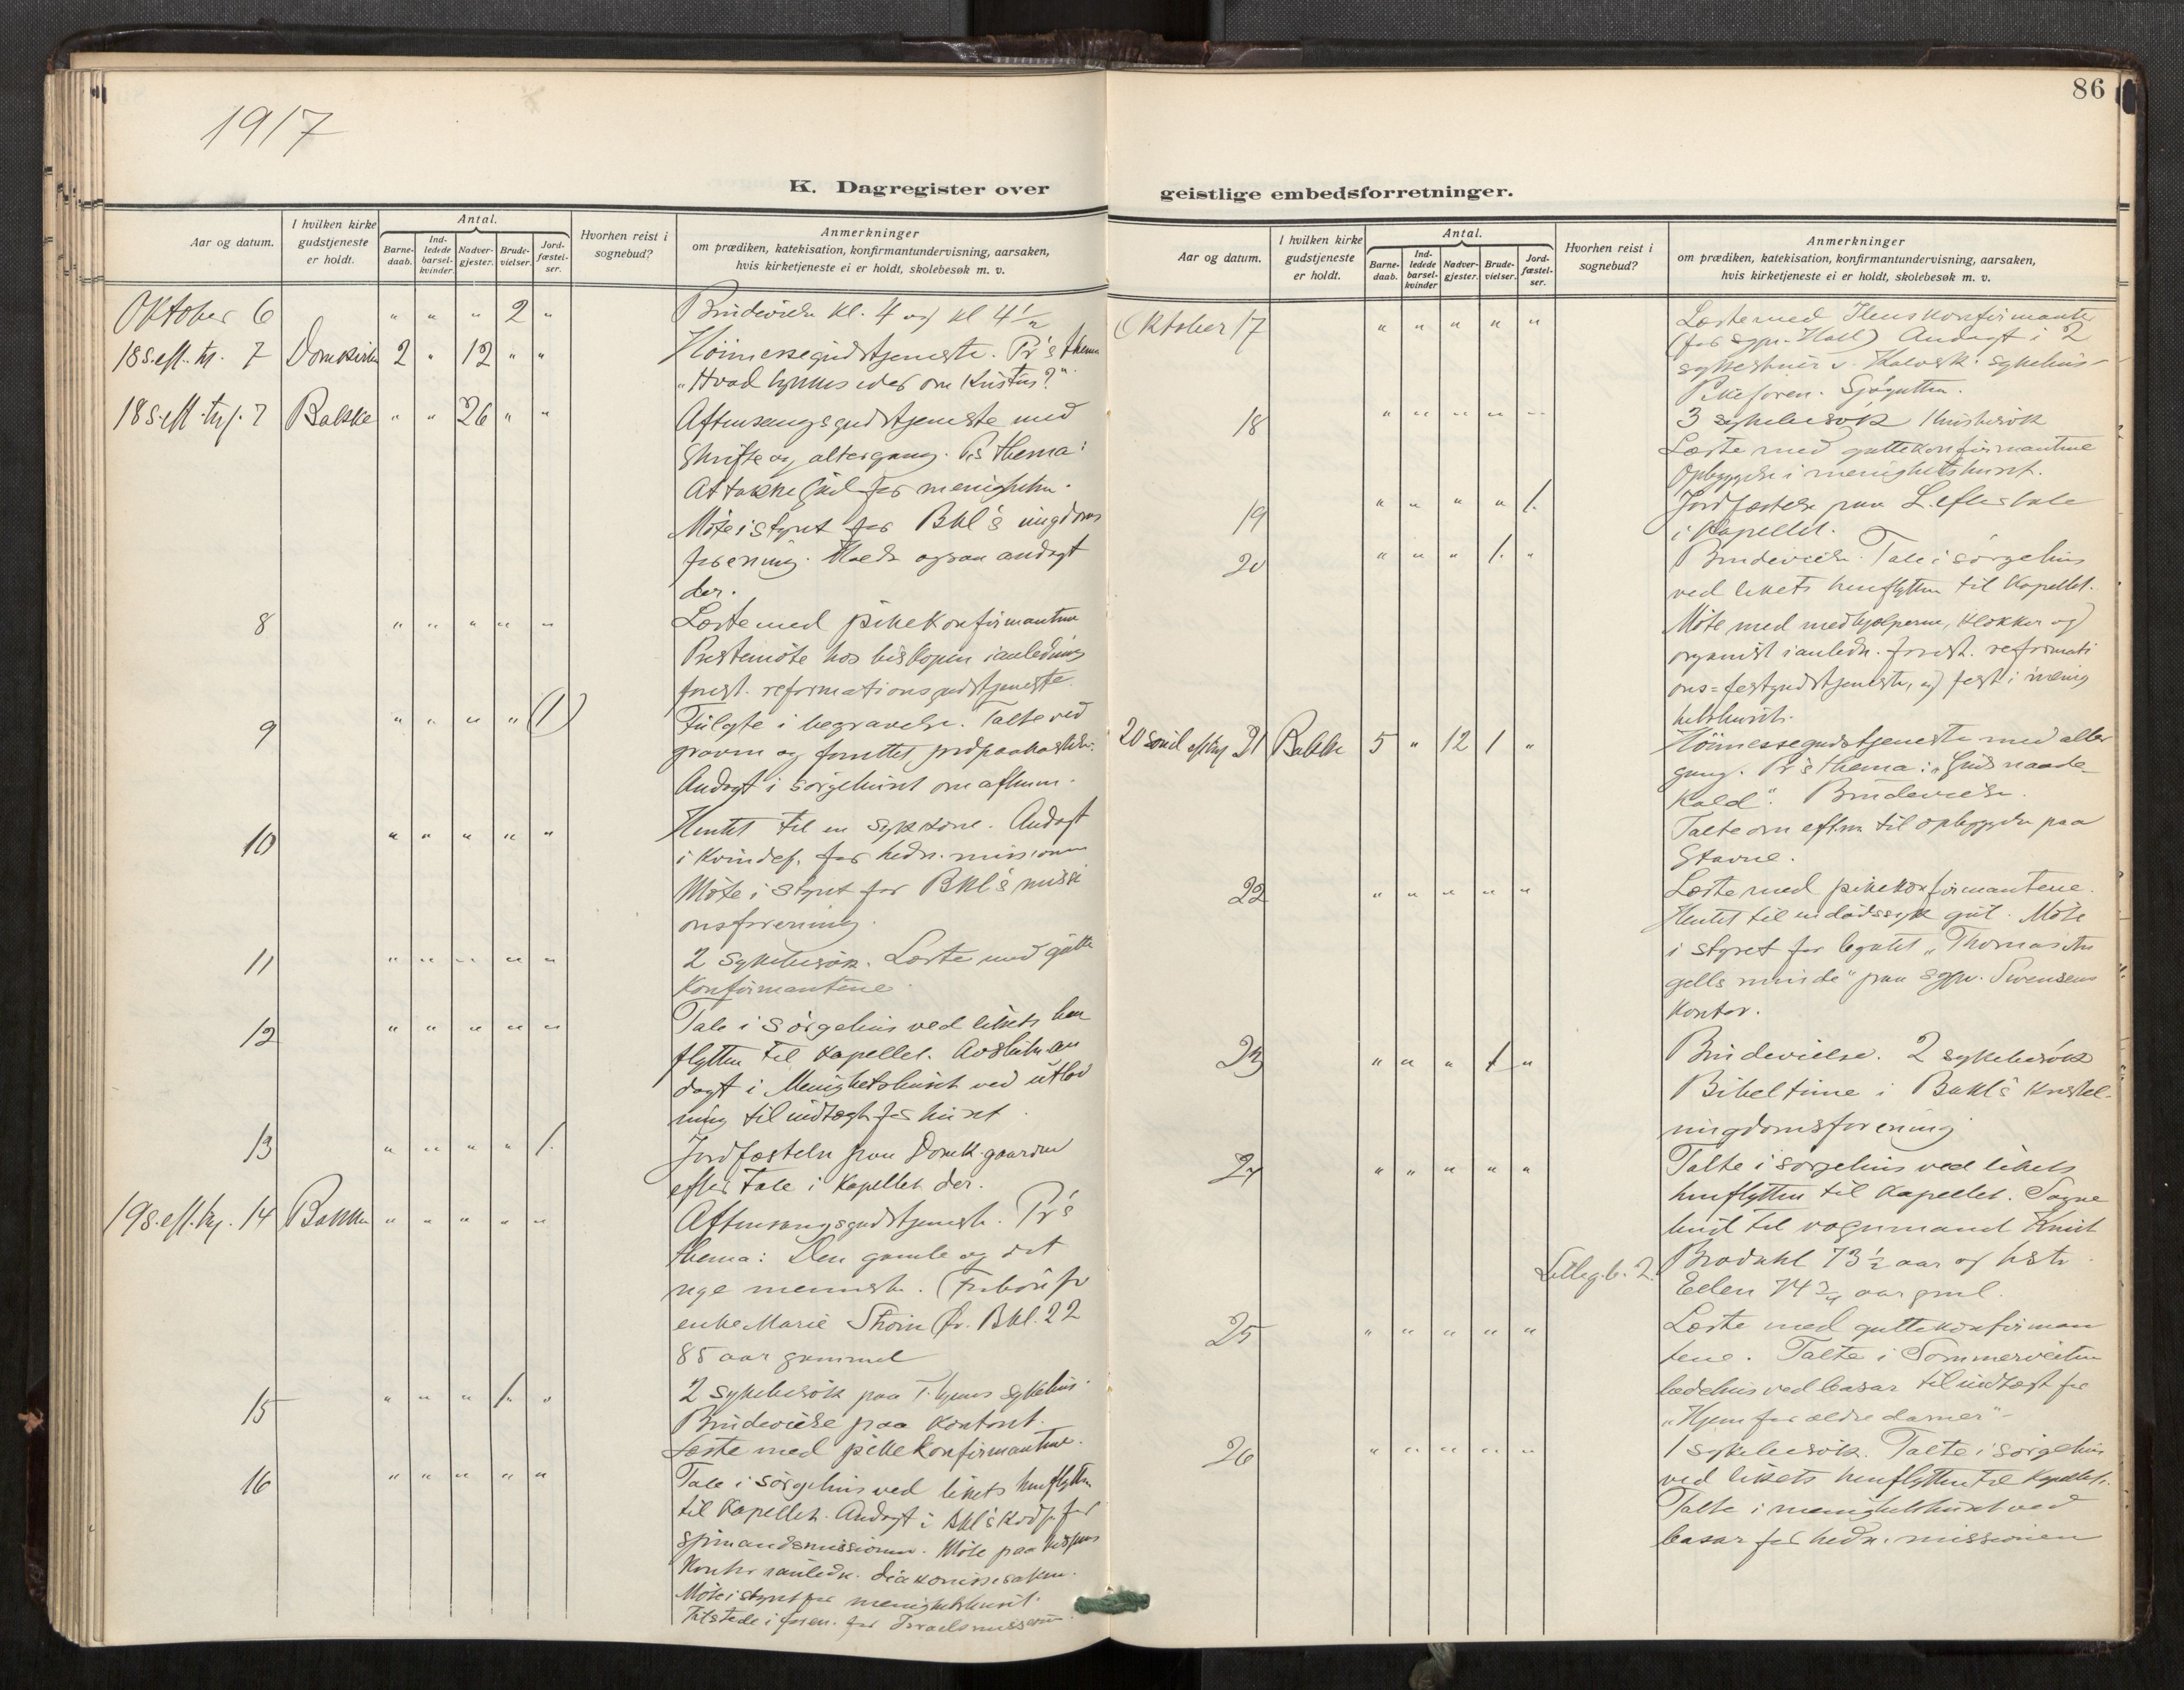 1917
K. Dagregister over
Aar og datum.
I hvilken kirke gudstjeneste er holdt.
Antal.
Barne-daab.
Ind-ledede barsel-kvinder.
Nadver-gjester.
Brude-vielser.
Jord-fæstel-ser.
Hvorhen reist i sognebud?
Anmerkninger
om prædiken, katekisation, konfirmantundervisning, aarsaken,
hvis kirketjeneste ei er holdt, skolebesøk m. v.
Oktober 6 " " " 2 " Brudevielse kl. 4 og kl 4 1/2
18 s. eft. tr. 7 Domkirken 2 " 12 " " Höimessegudstjeneste. Pr's thema
"Hvad synes eder om Kristus?"
18 s. eft. trf. 7 Bakke " " 26 " " Aftensangsgudstjeneste med
Skrifte og altergang. Prs thema:
At takke Gud for menigheten.
Möte i styret for Bkl's ungdoms
forening. Holdt ogsaa andagt
der.
8 " " " " " Læste med pikekonfirmantene
Prestemöte hos biskopen i anledning
forest. reformationsgudstjeneste.
9 " " " " (1) Fulgte i begravelse. Talte ved
graven og forrettet jordpaakastelse.
Andagt i sørgehuset om aftenen.
10 " " " " " Hentet til en syk kone. Andagt
i Kvindef. for hedn. missionen
Möte i styret for Bkl's missi
onsforening.
11 " " " " " 2 sykebesök. Læste med gutte
konfirmantene.
12 " " " " " Tale i sörgehus ved likets hen
flytten til Kapellet. Avsluttn. an
dagt i Menighetshuset ved utlod
ning til indtægt for huset.
13 " " " " 1. Jordfæstelse paa Domk. gaarden
efter tale i Kapellet der.
19 s. eft. trf. 14 Bakke " " " " " Aftensangsgudstjeneste. Pr's
thema: Den gamle og det
nye menneske.
enke Marie Bkl. 22
85 aar gammel
15 " " " 1. " 2 sykebesök paa T. hjems sykehus.
Brudevielse paa Kontoret.
Læste med pikekonfirmantene.
16 " " " " " Tale i sörgehus ved likets henflytten
til Kapellet. Andagt i Bkl's for
sjömandsmissionen. Möte paa bispens
Kontor i anledn. diakonissesaken.
Möte i styret for menighetshuset.
Tilstede i foren. for Israelsmissionen.
86
geistlige embedsforretninger.
Aar og datum.
I hvilken kirke gudstjeneste er holdt.
Antal.
Barne-daab.
Ind-ledede barsel-kvinder
Nadver-gjester.
Brude-vielser.
Jord-fæstel-ser.
Hvorhen reist i sognebud?
Anmerkninger
om prædiken, katekisation, konfirmantundervisning, aarsaken,
hvis kirketjeneste ei er holdt, skolebesøk m. v.
Oktober 17 " " " " " Læste med konfirmanter
(for sgpr. Hall) Andagt i 2
sykestuer v. sykehus
Pikeforen.
18 " " " " " 3 sykebesök 1 husbesök
Læste med guttekonfirmantene
Opbyggelse i menighetshuset.
19 " " " " 1. Jordfæstelse paa L. efter tale
i Kapellet.
20 " " " 1. " Brudevielse. Tale i sörgehus
ved likets henflytten til Kapellet.
Möte med medhjelperne, klokker og
organist i anledn. forest. reformati
ons=festgudstjeneste, og fest i menig
hetshuset.
20 sönd. eft trf 21 Bakke 5 " 12 1 " Höimessegudstjeneste med alter
gang. Pr's thema: "Guds naade-
kald". Brudevielse.
Talte om eftm. til opbyggelse paa
Stavne.
22 " " " " " Læste med pikekonfirmantene.
Hentet til en dödssyk gut. Möte
i styret for legatet "Thomas An
gells minde" paa sgpr. Svensens
Kontor.
23 " " " 1 " Brudevielse. 2 sykebesök
Bibeltime i Bakl's kristel.
ungdomsforening
24 " " " " " Talte i sorgehus ved likets
henflytten til Kapellet. Sogne
bud til vognmand Knut
Lilleg. b. 2. Brodahl 73 1/2 aar og hstr.
Ellen 74 3/4 aar gml.
25 " " " " " Læste med guttekonfirman
tene. Talte i Sommerveitens
bedehus ved basar til indtægt for
"Hjem for ældre damer"
26 " " " " " 1 sykebesök. Talte i sörgehus
ved likets henflytten til Kapellet.
Talte i menighetshuset ved
basar for hedn. missionen